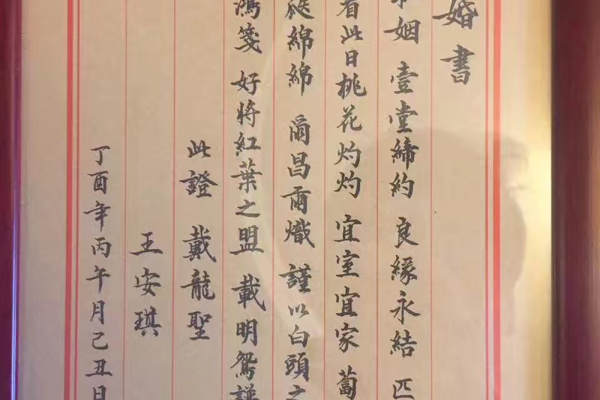 婚書
姻 壹堂締約 良緣永結 匹
看此日桃花灼灼 宜室宜家
綿綿 爾昌爾熾 謹以白頭之
鴻箋 好將紅葉之盟 載明鴛譜
此證 戴龍聖
王安琪
丁酉年丙午月己丑日